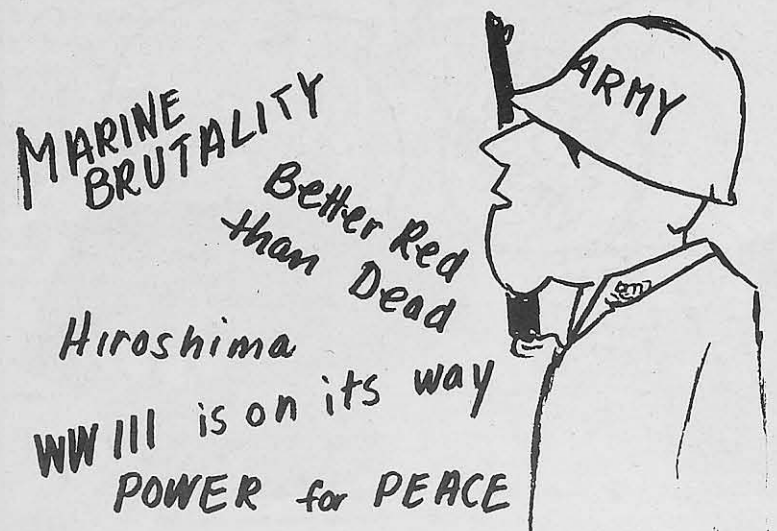 MARINE
BRUTALITY
ARMY
Better Red
than Dead
Hiroshima
WW III is on its way
POWER for PEACE